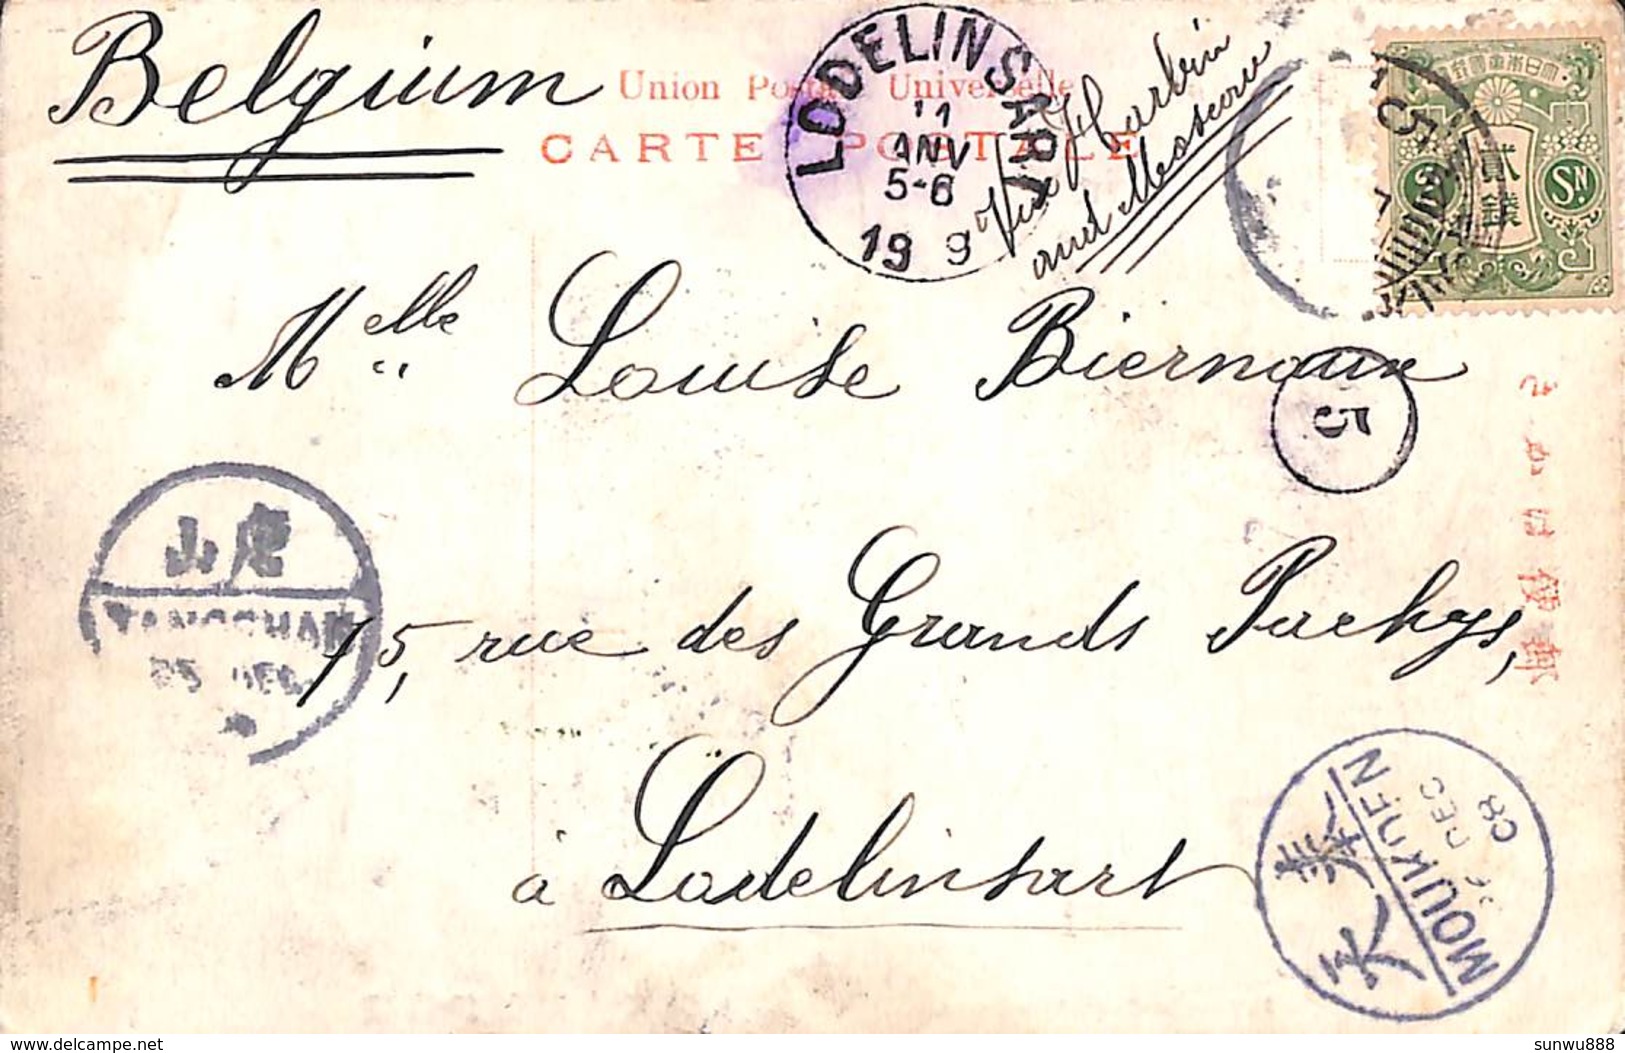 Belgium
Union Postale Universelle
CARTE POSTALE
LODELINSART
11
ANV
5-6
19 9
Via Harbin
and Moscou
貳
錢
2
SN
Melle Louise Biernaux
5
山唐
TANGSHAN
25 DEC
75, rue des Grands Pachys,
à Lodelinsart
奉天
MOUKDEN
DEC
08
sunwu888